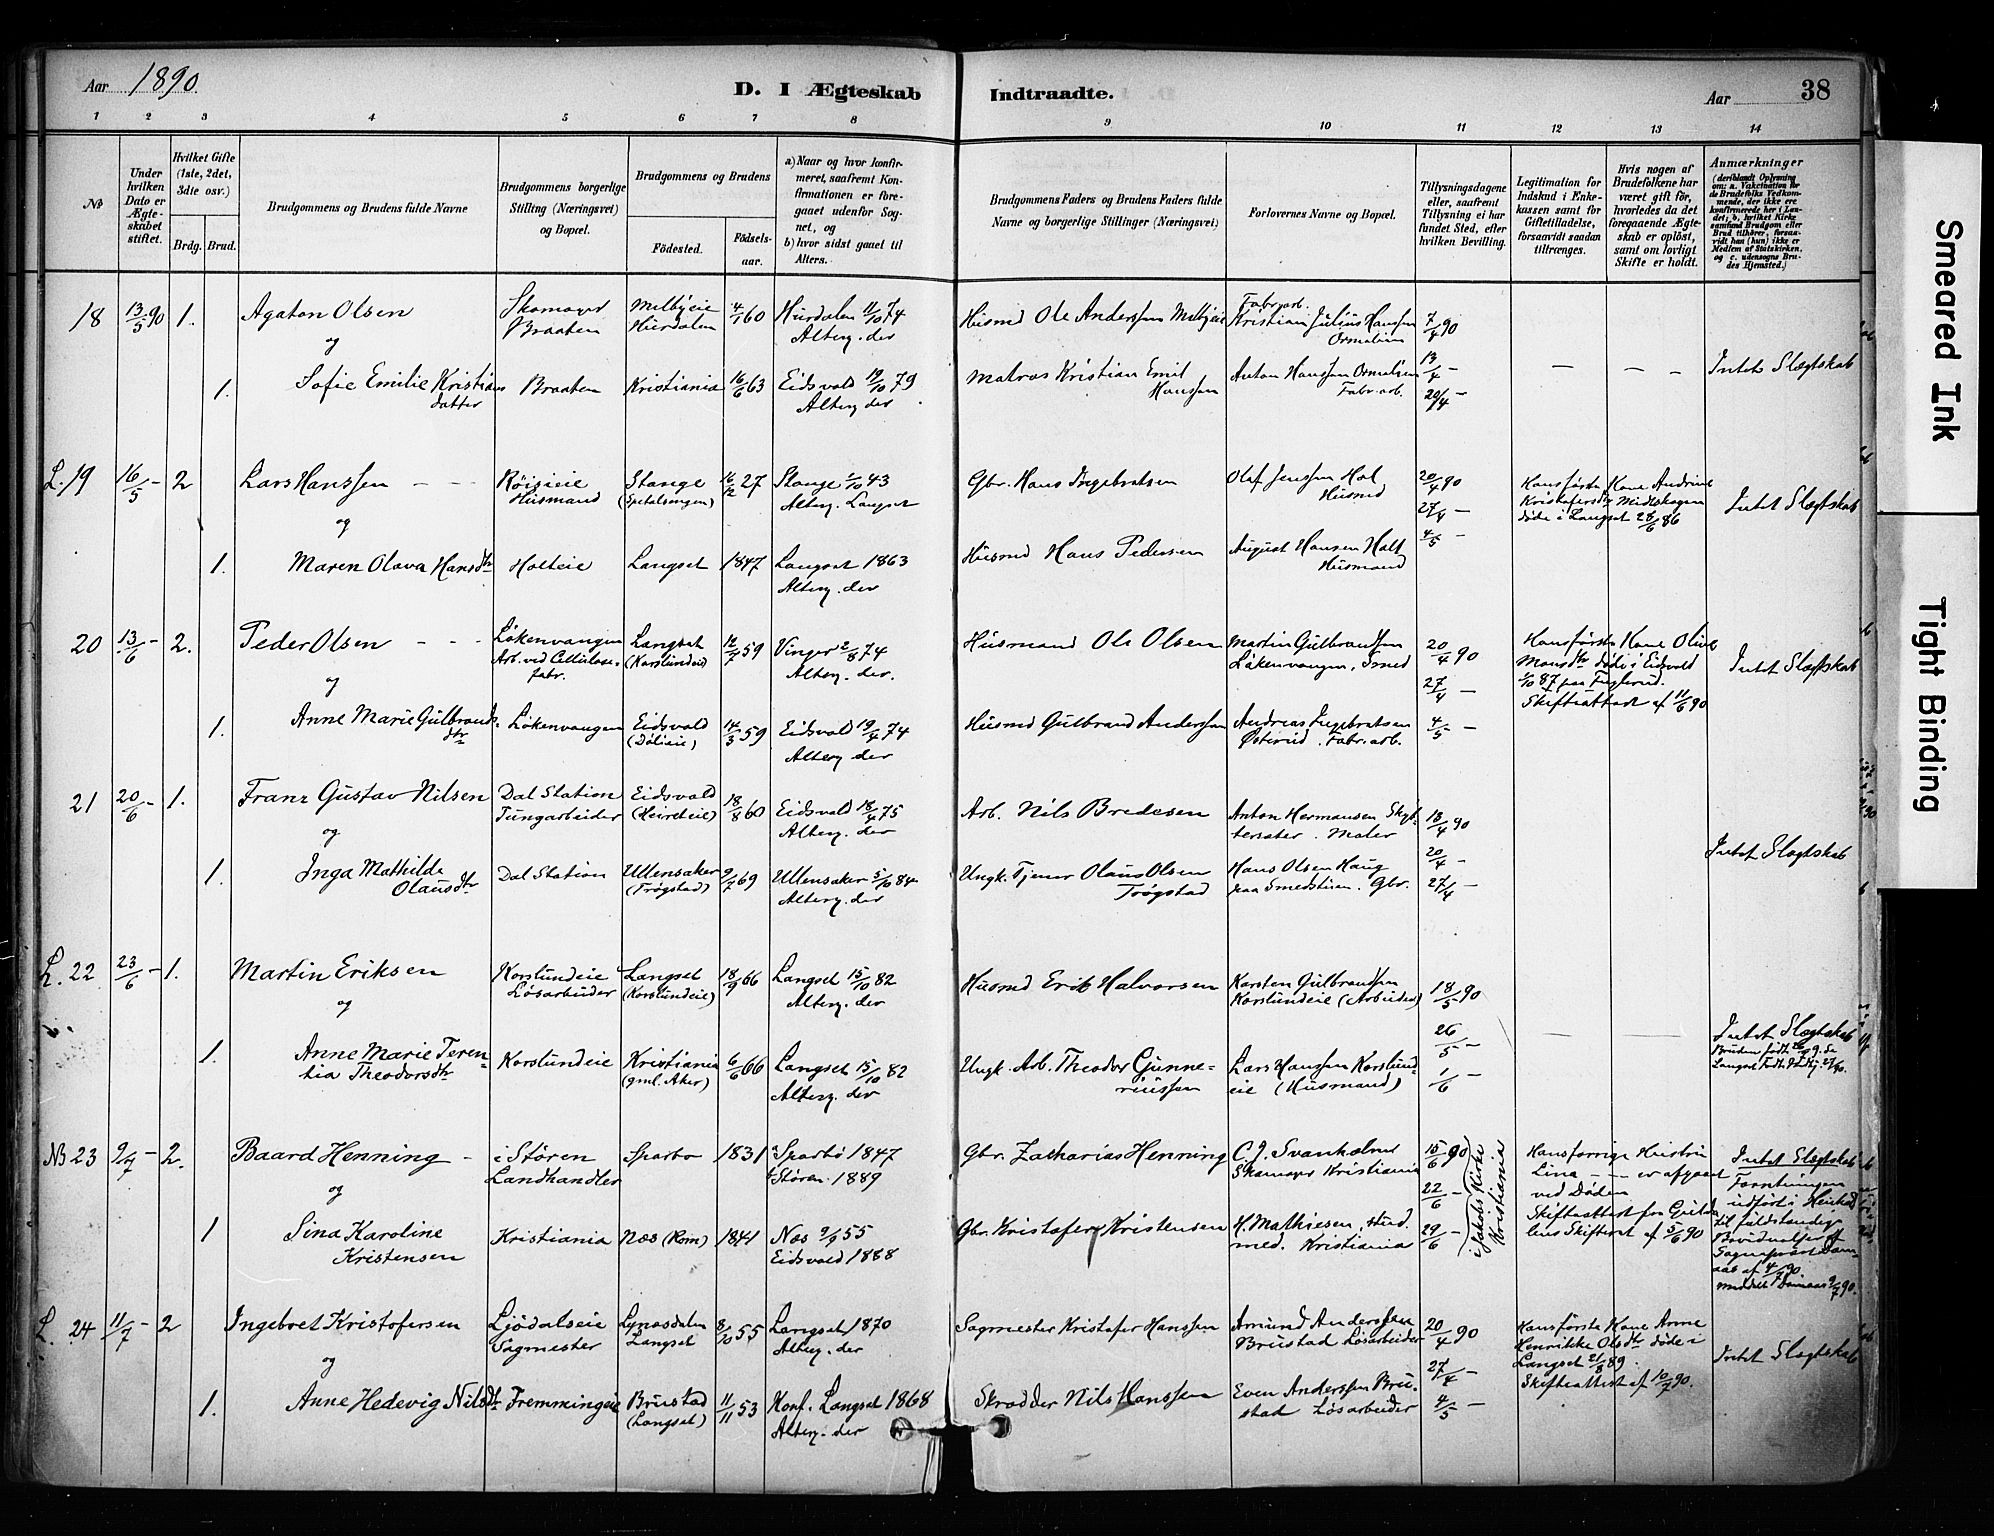 Aar 1890.
D. I Ægteskab Indtraadte.
Aar 38
1 2 3 4 5 6 7 8 9 10 11 12 13 14
№
Under hvilken Dato er Ægteskabet stiftet.
Hvilket Gifte (1ste, 2det, 3die osv.)
Brdg. Brud.
Brudgommens og Brudens fulde Navne
Brudgommens borgerlige Stilling (Næringsvei) og Bopæl.
Brudgommens og Brudens
Fødested. Fødsels-aar.
a) Naar og hvor konfirmeret, saafremt Konfirmationen er foregaaet udenfor Sognet, og
b) hvor sidst gaaet til Alters.
Brudgommens Faders og Brudens Faders fulde Navne og borgerlige Stillinger (Næringsvei)
Forlovernes Navne og Bopæl.
Tillysningsdagene eller, saafremt Tillysning ei har fundet Sted, efter hvilken Bevilling.
Legitimation for Indskud i Enkekassen samt for Giftetilladelse, forsaavidt saadan tiltrænges.
Hvis nogen af Brudefolkene har været gift før, hvorledes da det foregaaende Ægteskab er opløst, samt om lovligt Skifte er holdt.
Anmærkninger (deriblandt Oplysning om: a. Vakcination for de Brudefolks Vedkommende, der ikke ere konfirmerede her i Landet; b. hvilket Kirkesamfund Brudgom eller Brud tilhører, forsaavidt han (hun) ikke er Medlem af Statskirken, og c. udensogns Brudes Hjemsted.)
18 13/5 90 1. Agaton Olsen Skomager Braaten Melbyeie Hurdalen 4/1 60 Hurdalen 11/10 74 Alterg. der Husmd Ole Anderssen Melbyeie Fabr.arb. Kristian Julius Hanssen Ormelien 7/4 90
og
1. Sofie Emilie Kristiansdatter Braaten Kristiania 16/6 63 Eidsvold 19/10 79 Alterg. der Matros Kristian Emil Hanssen Anton Hanssen Ormelien Fabr.arb. 13/4 – 20/4 – – – – Intet Slægtskab
L. 19 16/5 – 2 Lars Hanssen – – Røisieie Husmand Stange 16/12 27 Stange 1/10 43 Alterg. Langset Gbr. Hans Ingebretsen Olaf Jenssen Hol Husmd 20/4 90 27/4 – 4/5 – Hans første Kone Andrine Kristofersdtr Midtskogen døde i Langset 28/6 86 Intet Slægtskab
og
1. Maren Olava Hansdtr Holteie Langset 1847 Langset 1863 Alterg. der Husmd Hans Pedersen August Hansen Holt Husmand
20 13/6 – 2. Peder Olsen – – Løkenvangen Arb. ved Cellulosefabr. Langset (Korslundeie) 12/7 59 Vinger 2/8 74 Alterg. der. Husmand Ole Olsen Martin Gulbrandssen Løkenvangen, Smed 20/4 90 27/4 – Hans første Kone Olive Mansdtr døde i Eidsvold 1/10 87 paa Fuglerud. Skifteattest af 11/6 90 Intet Slægtskab
og
1. Anne Marie Gulbrandsdtr Løkenvangen Eidsvold (Dølieie) 14/3 59 Eidsvold 19/4 74 Alterg der Husmd Gulbrand Anderssen Andreas Ingebretsen Østerud. Fabr.arb. 4/5 –
21 20/6 – 1. Franz Gustav Nilsen Dal Station Tungarbeider Eidsvold 18/8 60 Eidsvold 18/4 75 Alterg. der Arb. Nils Bredesen Anton Hermansen Maler 13/4 90
og
1. Inga Mathilde Olausdtr Dal Station Ullensaker (Trøgstad) 9/7 69 Ullensaker 5/10 84 Alterg. der Ungk. Tjener Olaus Olsen Trøgstad Hans Olsen Haug paa Smedstuen. Gbr. 20/4 – 27/4 – Intet Slægtskab
L. 22 23/6 – 1. Martin Eriksen Korslundeie Løsarbeider Langset (Korslundeie) 18/9 66 Langset 15/10 82 Alterg. der Husmd Erik Halvorsen Karsten Gulbrandssen Korslundeie (Arbeider) 18/5 90
og
1. Anne Marie Terentia Theodorsdtr Korslundeie Kristiania (gml. Aker) 6/6 66 Langset 15/10 82 Alterg. der Ungk. Arb. Theodor Gunneriussen Lars Hanssen Korslundeie (Husmand) 26/5 – 1/6 – – – Intet Slægtskab
NB 23 9/7 – 2. Baard Henning – i Støren Landhandler Sparbo 1831 a Sparbo 1847 b Støren 1889 Gbr. Zacharias Henning C. J. Svanholm Skomager Kristiania 15/6 90 22/6 – 29/6 – i Jakobs Kirke Kristiania Hans forrige Hustru Lina – – er afgaaet ved Døden Skifteattest fra Guldalens Skifteret af 5/6 90 Intet Slægtskab
og
1 Sina Karoline Kristensen Kristiania Næs (Rom) 1841 Næs 9/9 55 Eidsvold 1888 Gbr. Kristofer Kristensen H. Mathiesen, stud. med. Kristiania
L. 24 11/7 – 2 Ingebret Kristofersen Ljødalseie Sagmester Lynasdalen Langset 8/10 55 Langset 1870 Alterg. der Sagmester Kristofer Hanssen Amund Anderssen Brustad Løsarbeider 20/4 90 27/4 – Hans første Kone Anne Henrikke Olsdtr døde i Langset 21/8 89. Skifteattest af 10/7 90. Intet Slægtskab
og
1. Anne Hedevig Nilsdtr Fremmingeie Brustad (Langset) 11/11 53 Konf. Langset 1868 Alterg. der Skrædder Nils Hanssen Even Anderssen Brustad Løsarbeider 4/5 –
Smeared Ink
Tight Binding